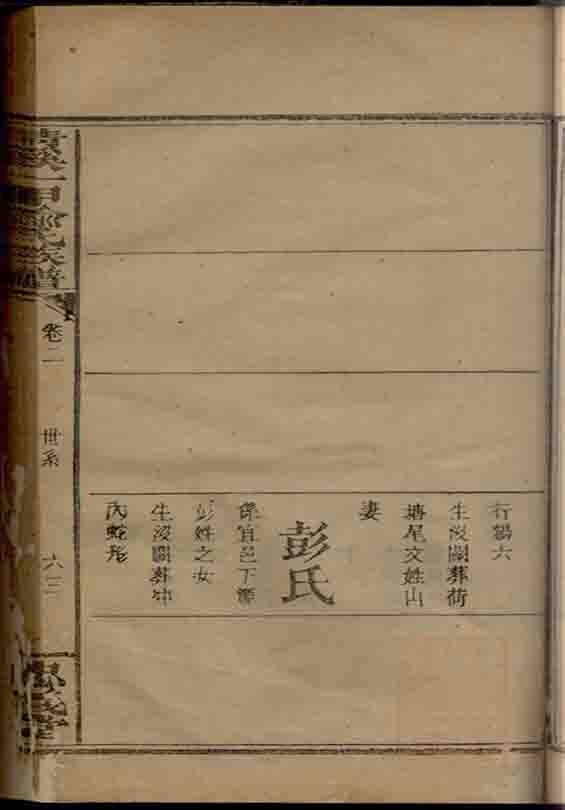 行錫六
生沒闕葬荷
塘尾文姓山
妻
彭氏
係宜邑下源
彭姓之女
生沒闕葬冲
內蛇形
族譜
卷二
世系
六三
堂